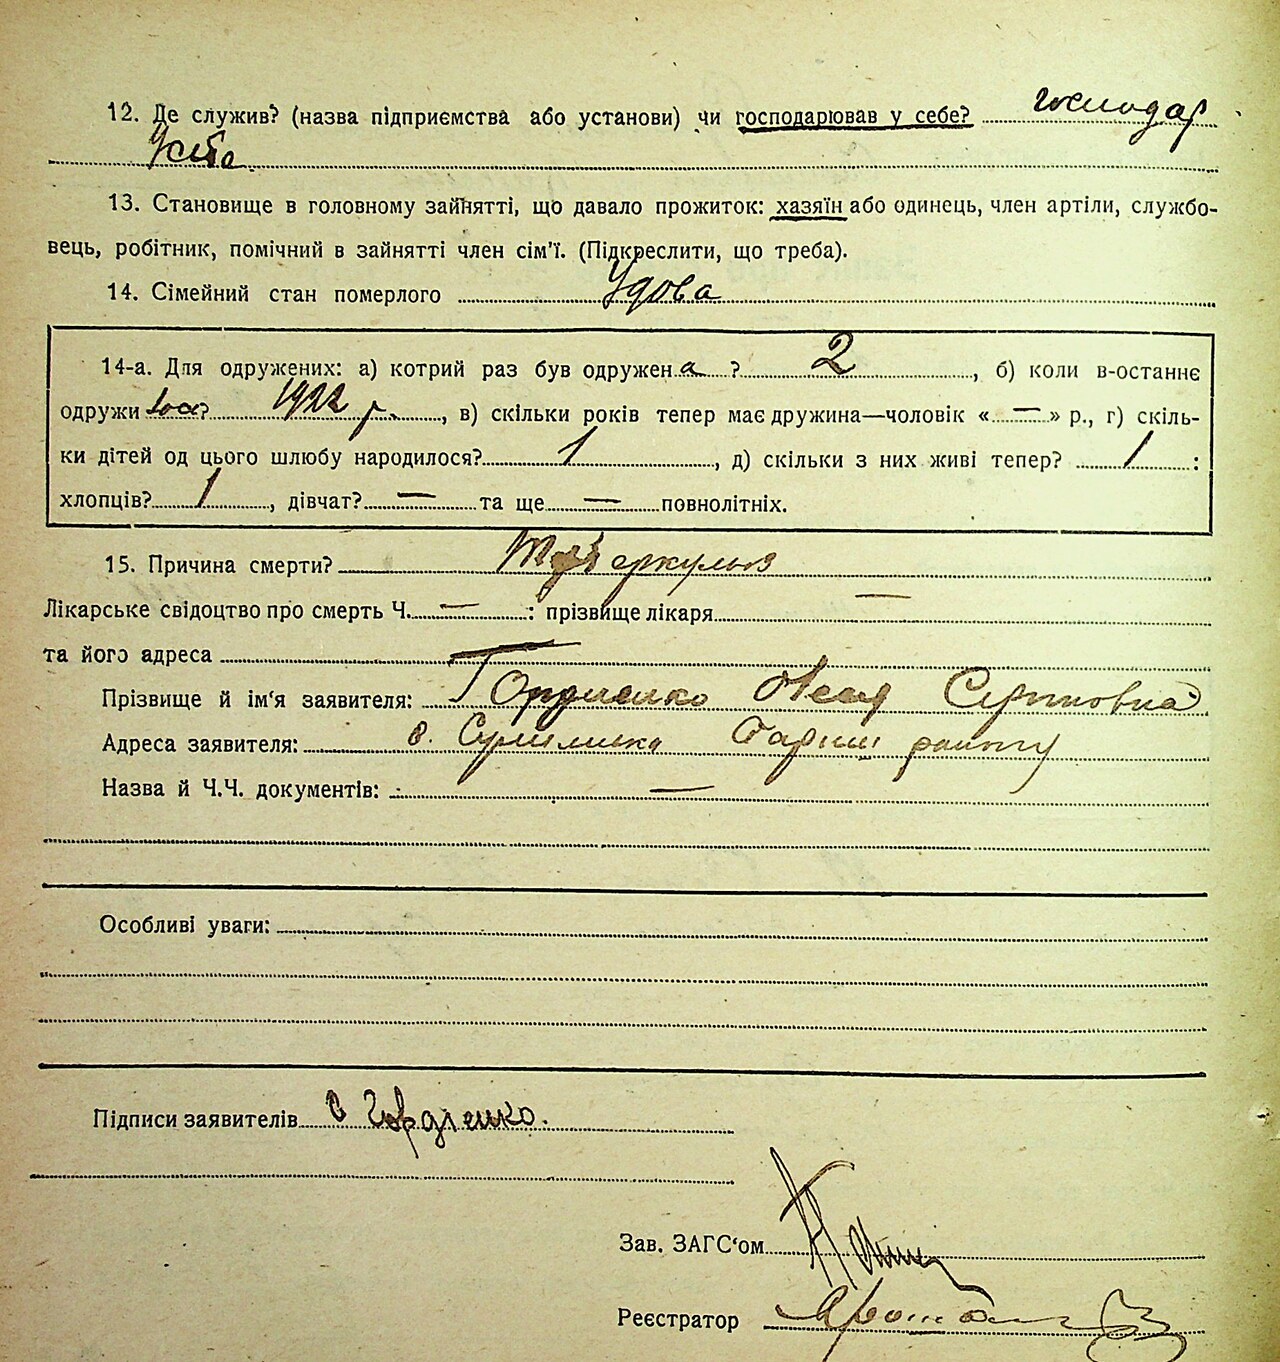 12. Де служив? (назва підприємства або установи) чи господарював у себе? господар
у себе
13. Становище в головному зайнятті, що давало прожиток: хазяїн або одинець, член артіли, службо-
вець, робітник, помічний в зайнятті член сім'ї. (Підкреслити, що треба).
14. Сімейний стан померлого Удова
14-а. Для одружених: а) котрий раз був одружена? 2, б) коли в-останнє
одружилася? 1922 р., в) скільки років тепер має дружина—чоловік «—» р., г) скіль-
ки дітей од цього шлюбу народилося? 1, д) скільки з них живі тепер? 1:
хлопців? 1, дівчат? — та ще — повнолітніх.
15. Причина смерти? Туберкульоз
Лікарське свідоцтво про смерть Ч. —: прізвище лікаря —
та його адреса —
Прізвище й ім'я заявителя: Гордиенко
Адреса заявителя: с. району
Назва й Ч.Ч. документів: —
Особливі уваги:
Підписи заявителів Гордієнко.
Зав. ЗАГС'ом
Реєстратор